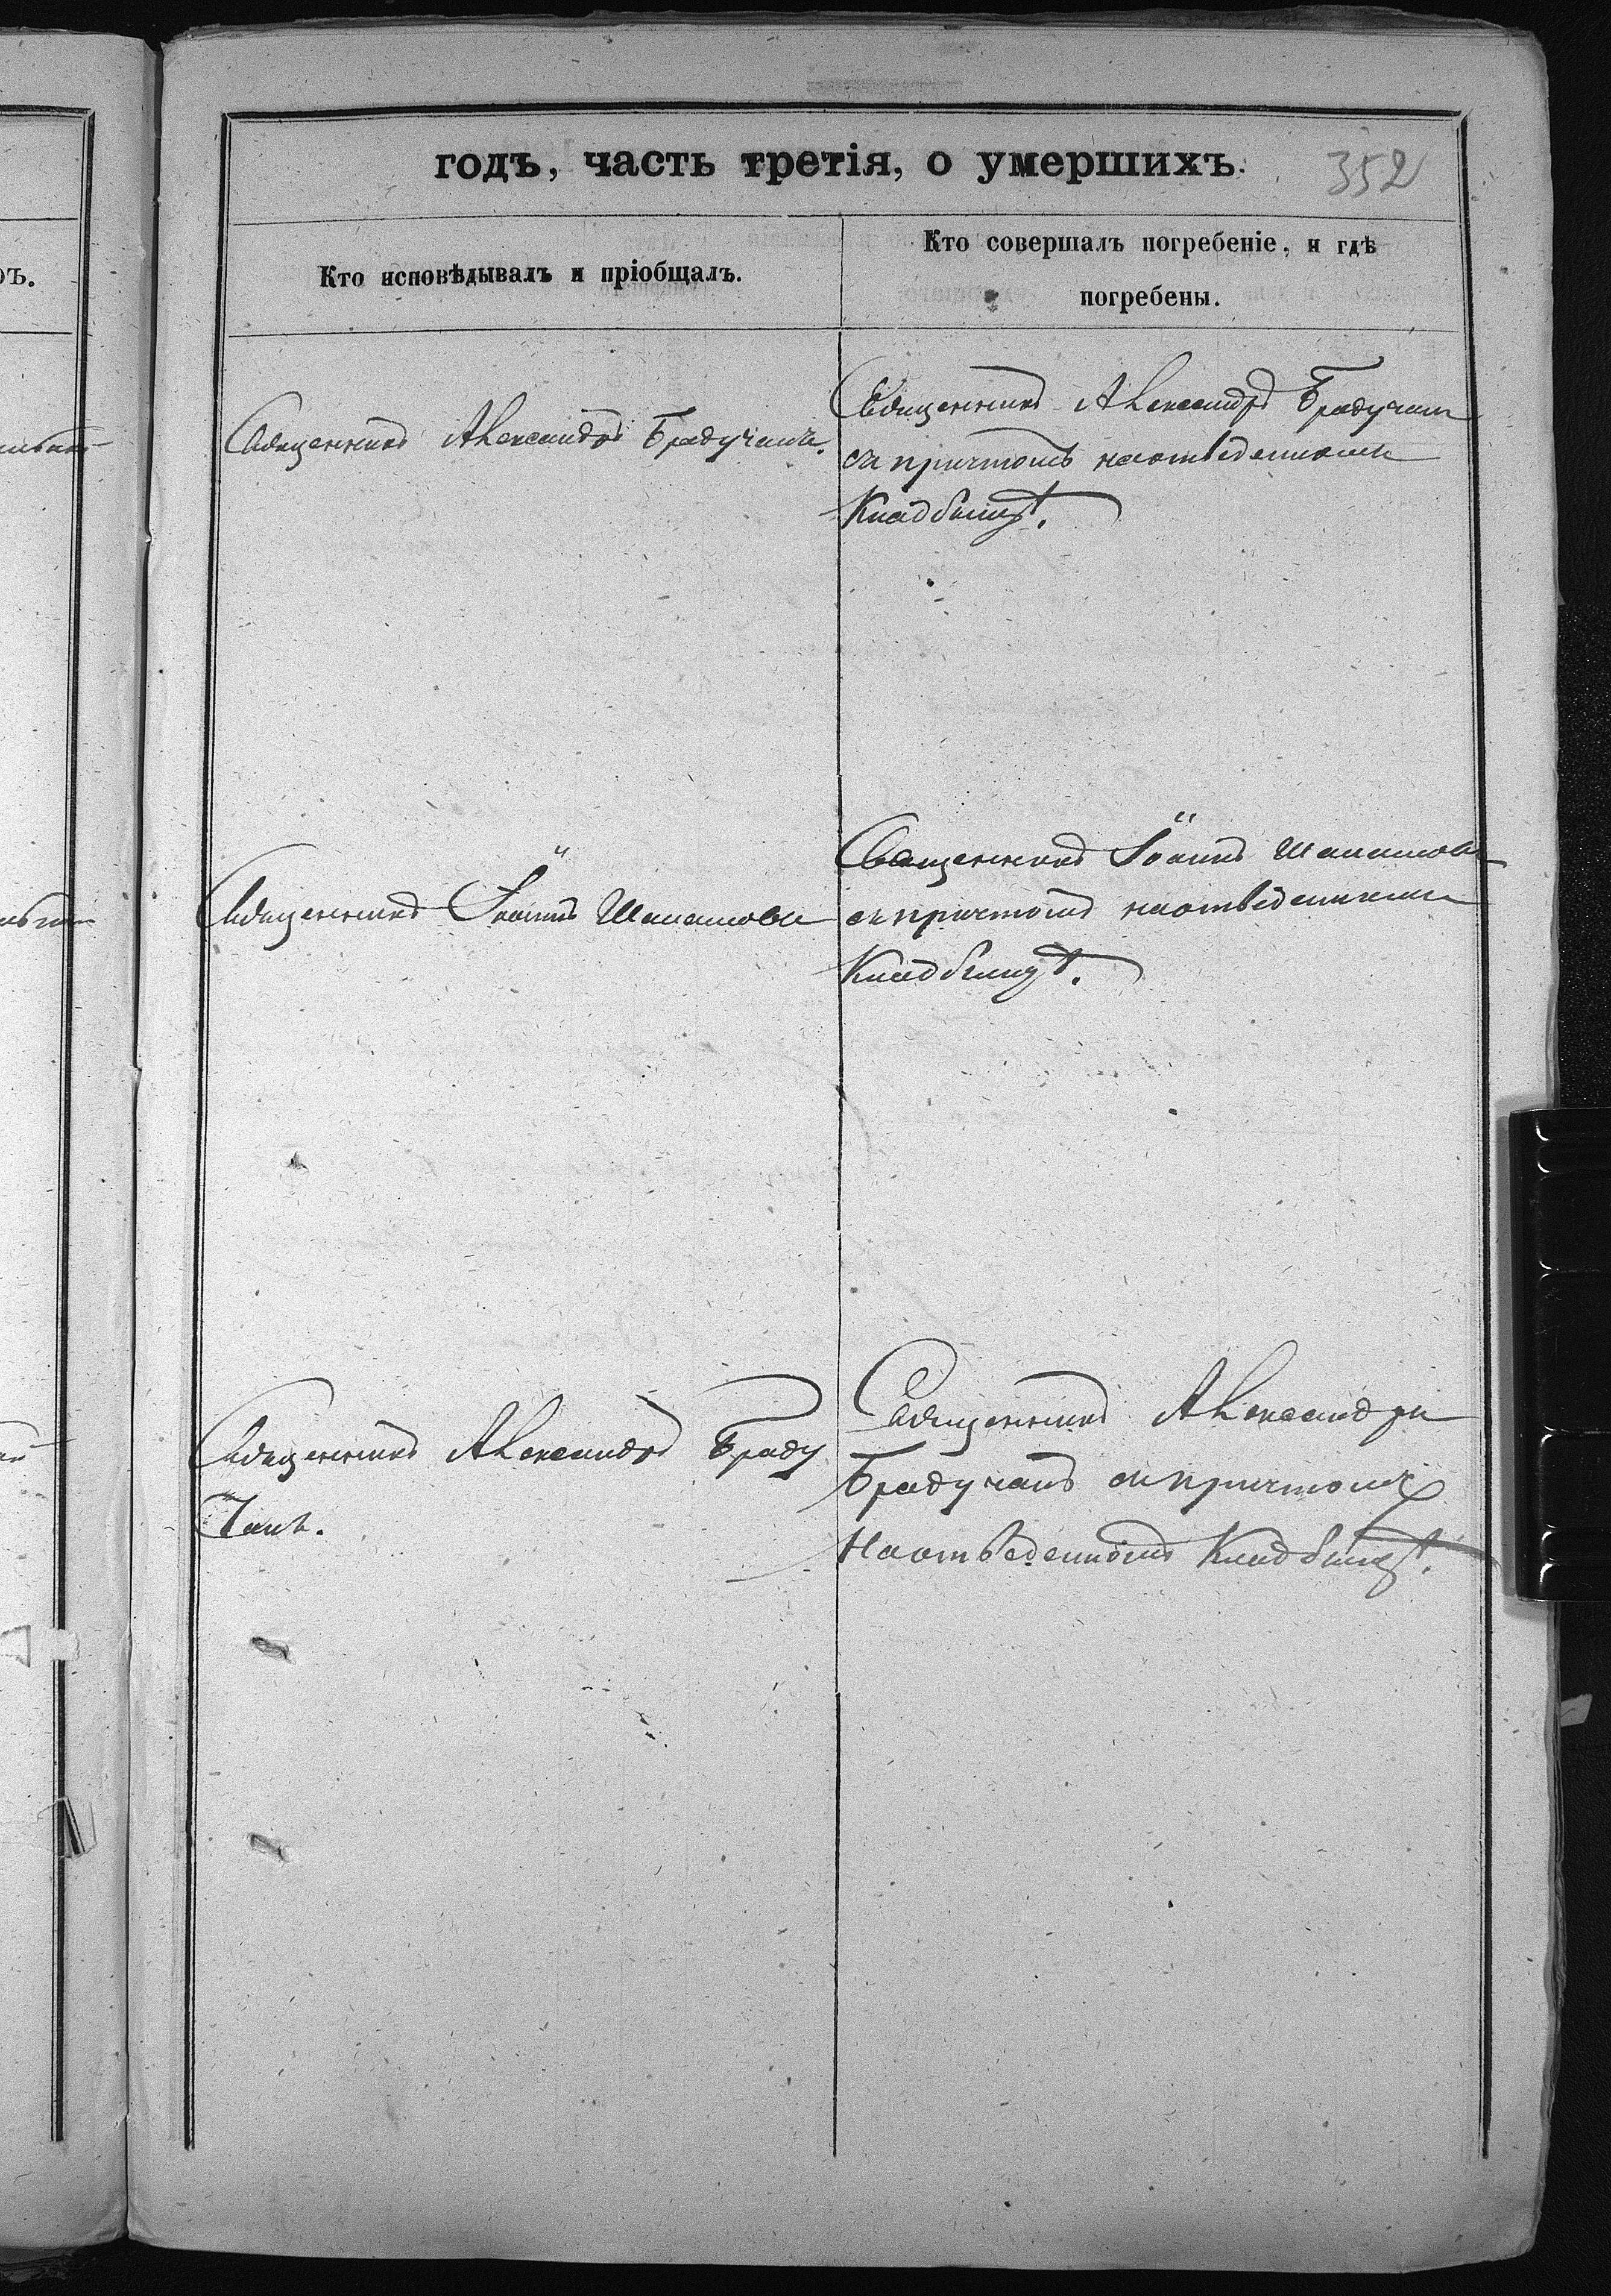 годъ, часть третія, о умершихъ.
352
Кто исповѣдывалъ и пріобщалъ.
Кто совершалъ погребеніе, и гдѣ
погребены.
ръ.
Священникъ Александръ Брадучанъ.
Священникъ Александръ Брадучанъ
съ причтомъ на отведенномъ
Кладбищѣ.
Священникъ Іоаннъ
Священникъ Іоаннъ
съ причтомъ на отведенномъ
Кладбищѣ.
Священникъ Александръ Браду
Чанъ.
Священникъ Александръ
Брадучанъ съ причтомъ
На отведенномъ Кладбищѣ.